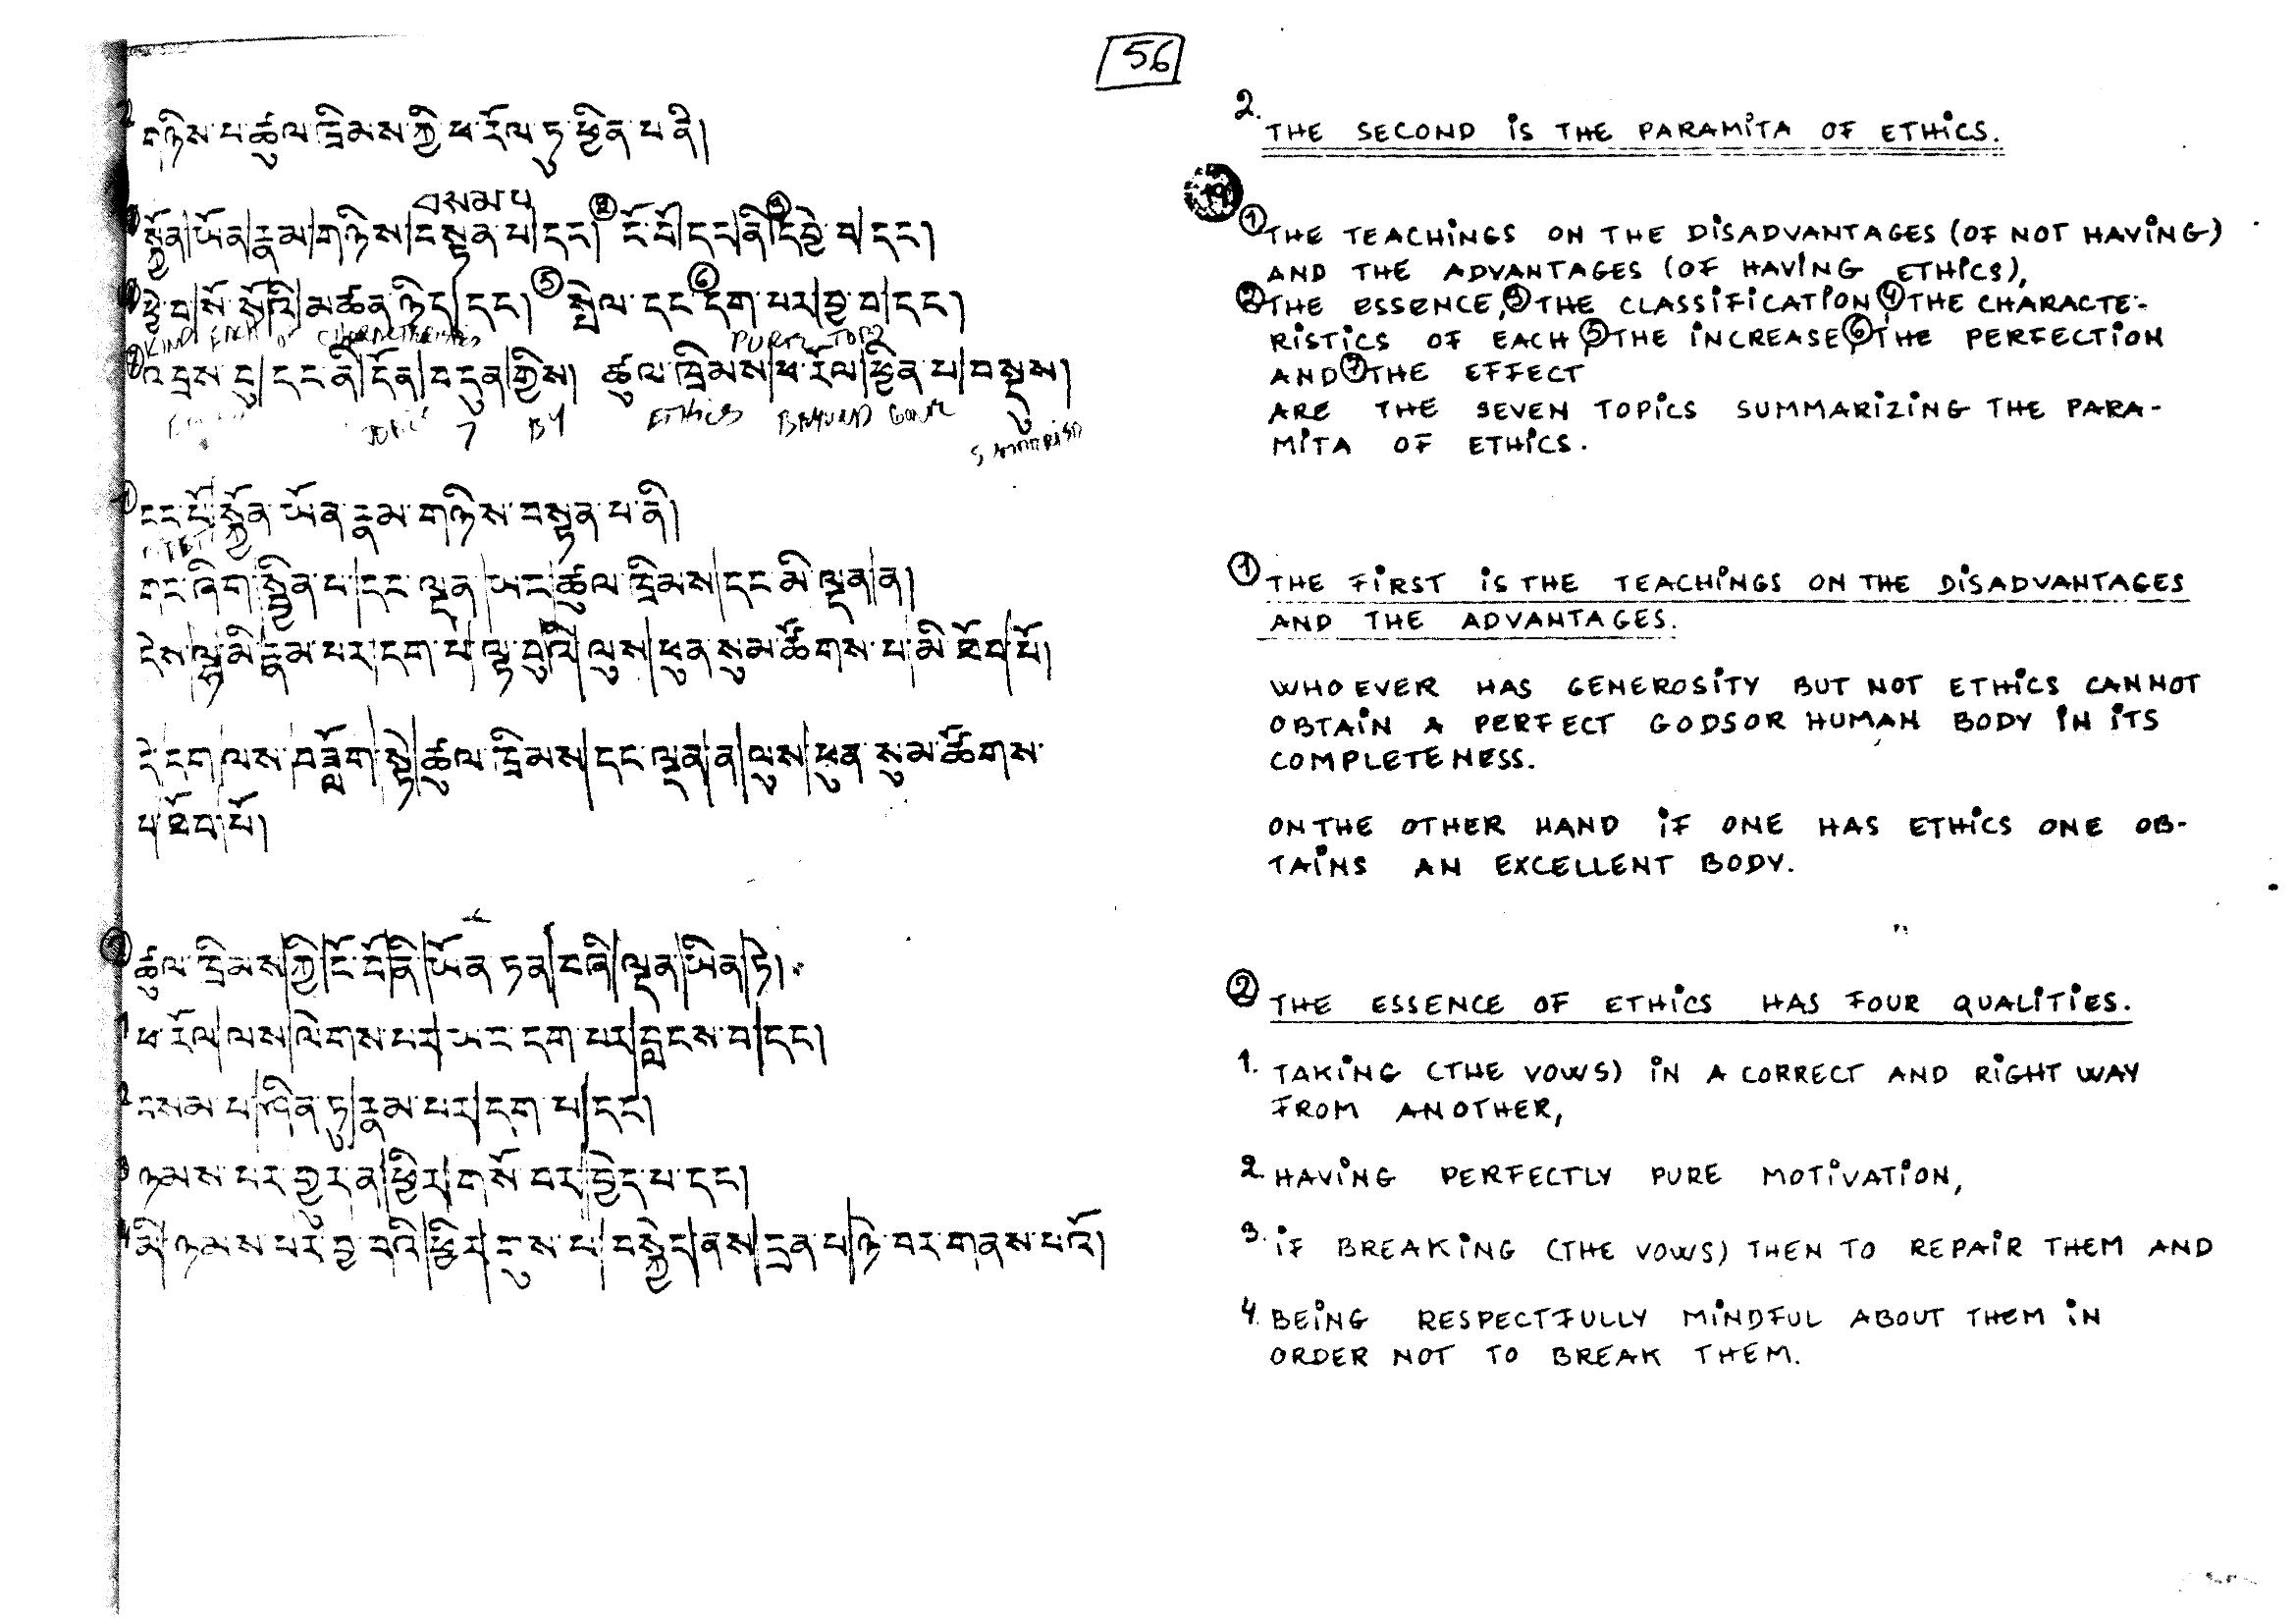 56
གཉིས་པ་ཚུལ་ཁྲིམས་ཀྱི་ཕ་རོལ་ཏུ་ཕྱིན་པ་ནི།
བསམ་པ
སྐྱོན|ཡོན|རྣམ|གཉིས|བསྟན་པ|དང་། ② ངོ་བོ|དང|ནི ③ དབྱེ་བ|དང་།
④ ཕྱེ་བ|སོ་སོའི|མཚན་ཉིད|དང་། ⑤ སྤེལ་དང ⑥ དག་པར|བྱ་བ|དང་།
KIND EACH OF CHARACTERISTICS PURE TOPIC
⑦ འབྲས་བུ|དང་ནི|དོན|བདུན|གྱིས། ཚུལ་ཁྲིམས|ཕ་རོལ|ཕྱིན་པ|བསྡུས།
TOPIC 7 BY ETHICS BEYOND GONE
① དང་པོ|སྐྱོན་ཡོན་རྣམ་གཉིས་བསྟན་པ་ནི།
གང་ཞིག|སྦྱིན་པ|དང་ལྡན|ཡང|ཚུལ་ཁྲིམས|དང་མི་ལྡན|ན།
དེས|ལྷ་མི|རྣམ་པར་དག་པ|ལྟ་བུའི|ལུས|ཕུན་སུམ་ཚོགས་པ|མི་ཐོབ|པོ།
དེ་དག|ལས་བཟློག|སྟེ|ཚུལ་ཁྲིམས|དང་ལྡན|ན|ལུས|ཕུན་སུམ་ཚོགས་
པ|ཐོབ|པོ།
② ཚུལ་ཁྲིམས|ཀྱི|ངོ་བོ|ནི|ཡོན་ཏན|བཞི|ལྡན|ཡིན|ཏེ།
1 ཕ་རོལ|ལས|ལེགས་པར|ཡང་དག་པར|བླངས་བ|དང་།
2 བསམ་པ|ཤིན་ཏུ|རྣམ་པར|དག་པ|དང་།
3 ཉམས་པར་གྱུར་ན|ཕྱིར|གསོ་བར|བྱེད་པ་དང་།
4 མི|ཉམས་པར་བྱ་བའི|ཕྱིར|གུས་པ|བསྐྱེད|ནས|དྲན་པ|ཉེ་བར་གནས་པའོ།
2. THE SECOND IS THE PARAMITA OF ETHICS.
① THE TEACHINGS ON THE DISADVANTAGES (OF NOT HAVING)
AND THE ADVANTAGES (OF HAVING ETHICS),
② THE ESSENCE, ③ THE CLASSIFICATION ④ THE CHARACTE-
RISTICS OF EACH ⑤ THE INCREASE ⑥ THE PERFECTION
AND ⑦ THE EFFECT
ARE THE SEVEN TOPICS SUMMARIZING THE PARA-
MITA OF ETHICS.
① THE FIRST IS THE TEACHINGS ON THE DISADVANTAGES
AND THE ADVANTAGES.
WHO EVER HAS GENEROSITY BUT NOT ETHICS CANNOT
OBTAIN A PERFECT GODSOR HUMAN BODY IN ITS
COMPLETENESS.
ON THE OTHER HAND IF ONE HAS ETHICS ONE OB-
TAINS AN EXCELLENT BODY.
② THE ESSENCE OF ETHICS HAS FOUR QUALITIES.
1. TAKING (THE VOWS) IN A CORRECT AND RIGHT WAY
FROM ANOTHER,
2 HAVING PERFECTLY PURE MOTIVATION,
3. IF BREAKING (THE VOWS) THEN TO REPAIR THEM AND
4. BEING RESPECTFULLY MINDFUL ABOUT THEM IN
ORDER NOT TO BREAK THEM.